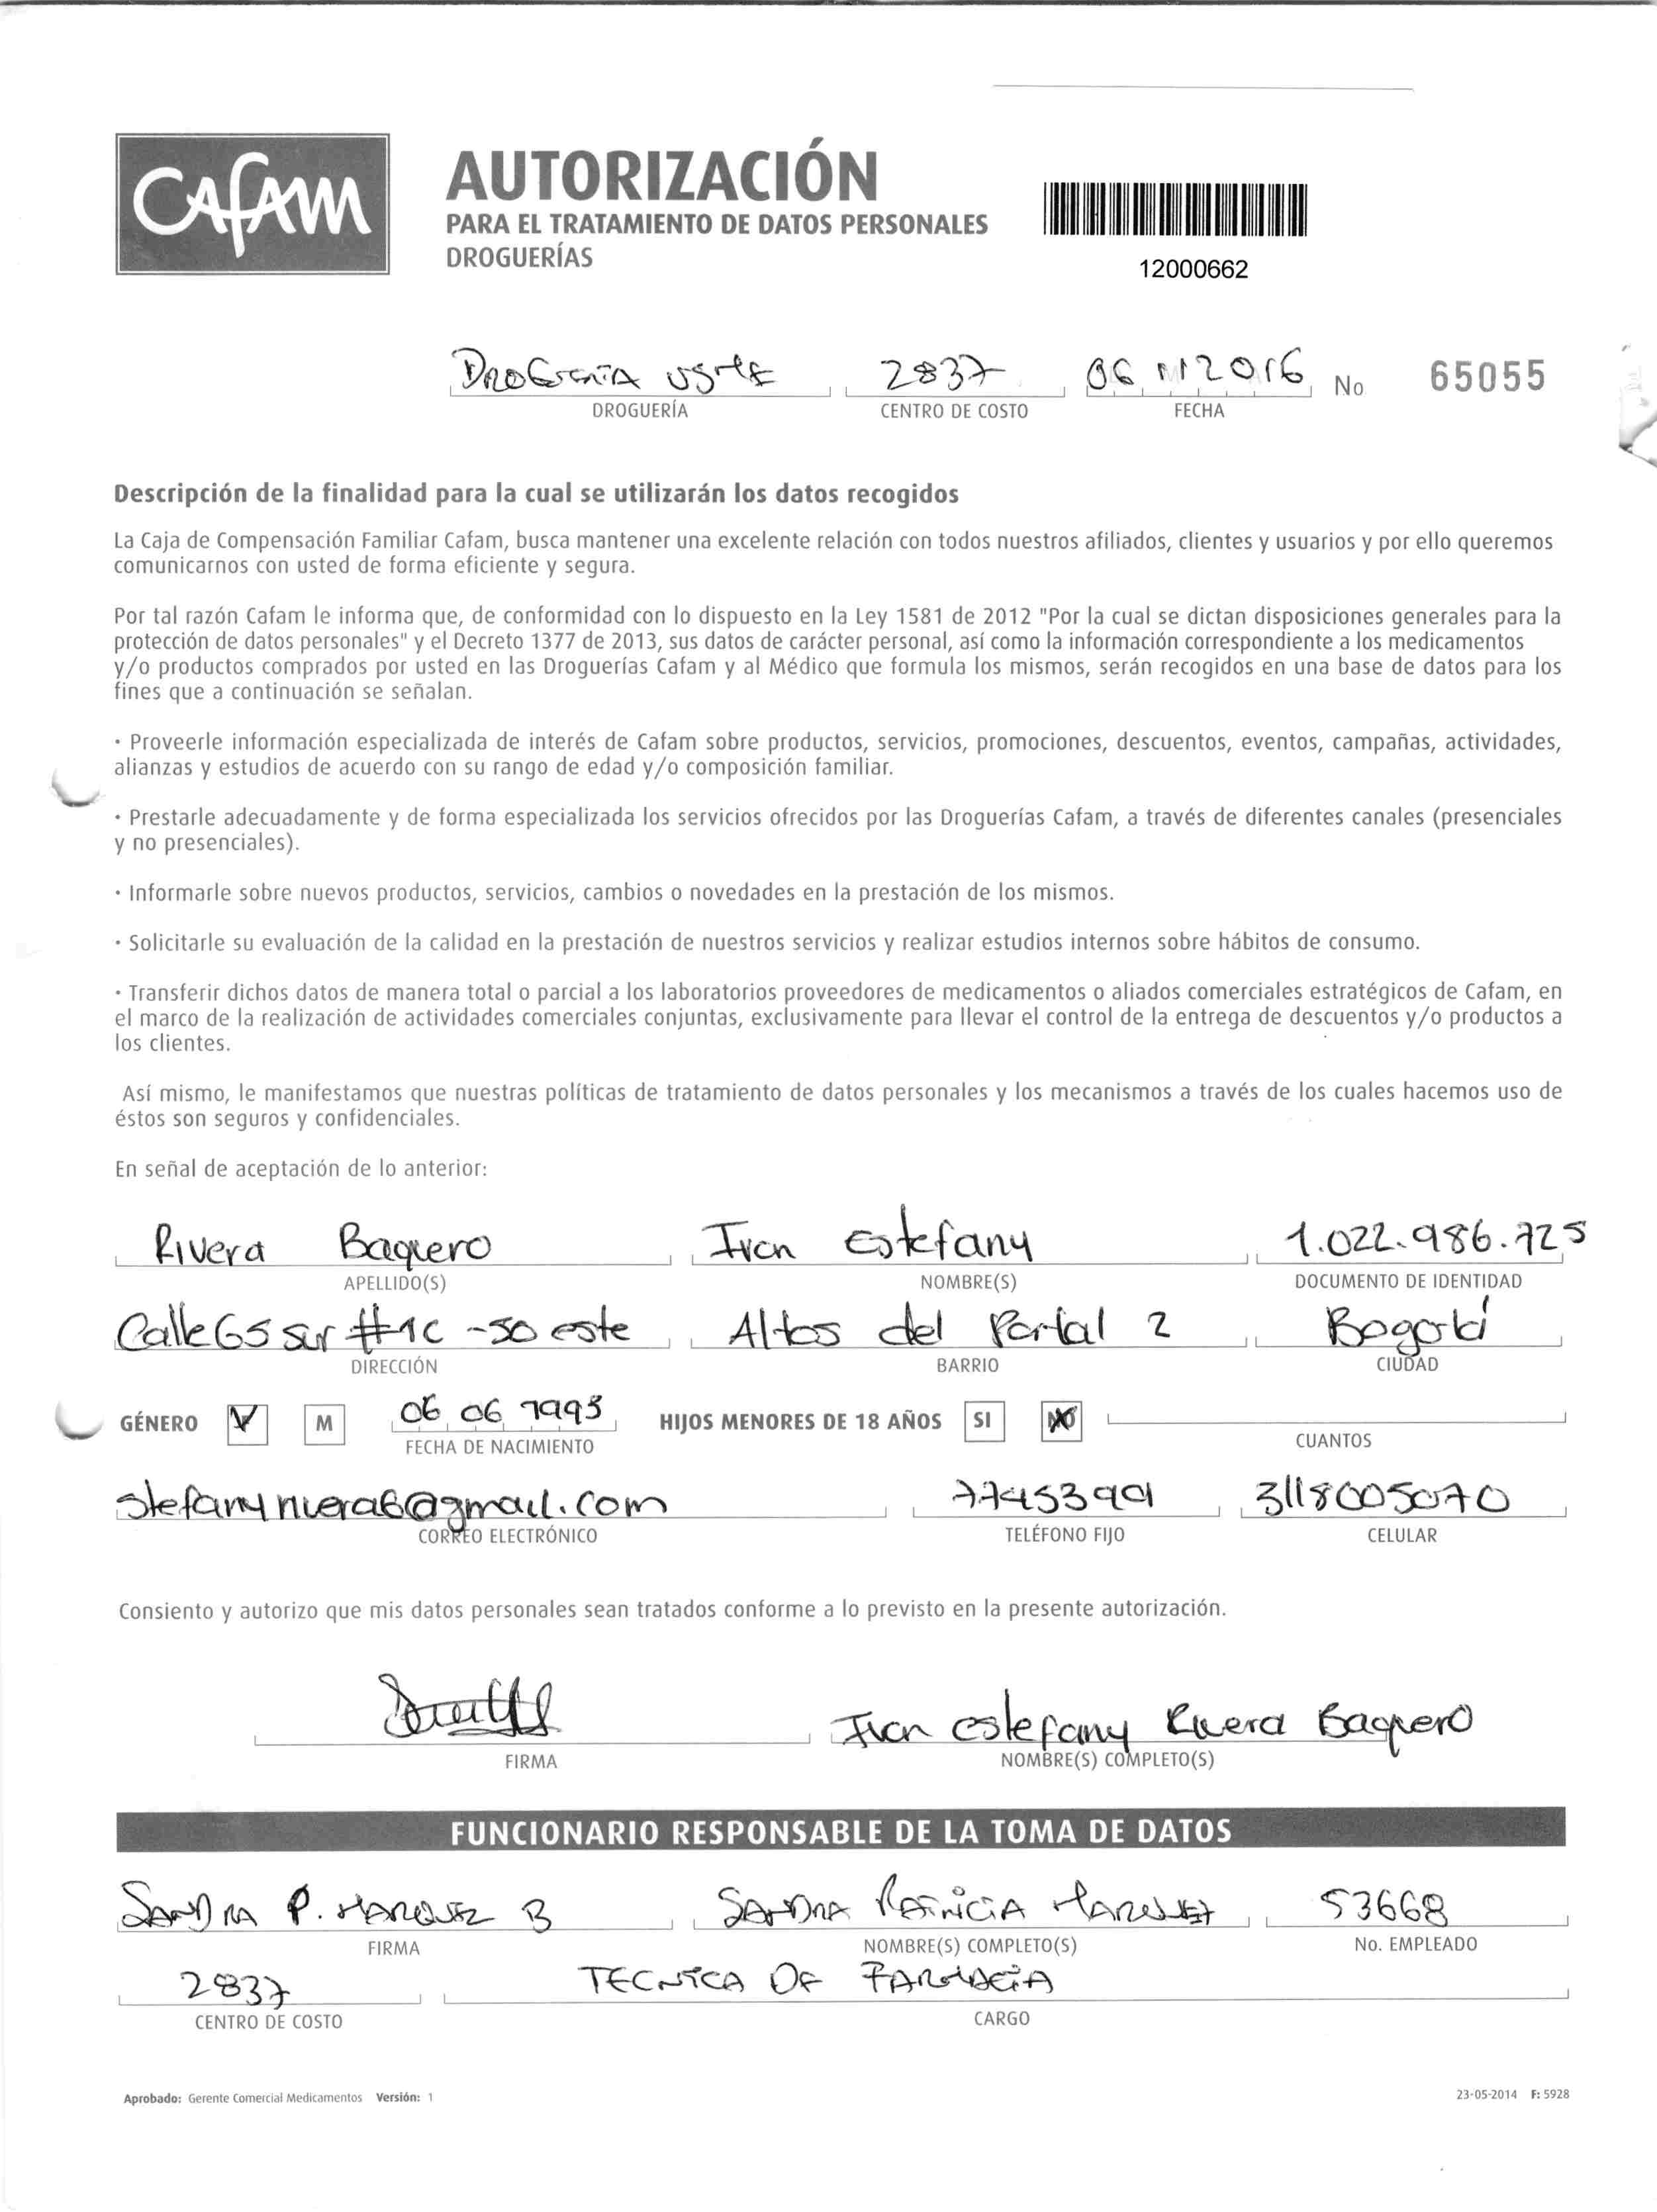 CAFAM
AUTORIZACIÓN
PARA EL TRATAMIENTO DE DATOS PERSONALES
DROGUERÍAS
12000662
2837 06 2016 No 65055
DROGUERÍA CENTRO DE COSTO FECHA
Descripción de la finalidad para la cual se utilizarán los datos recogidos
La Caja de Compensación Familiar Cafam, busca mantener una excelente relación con todos nuestros afiliados, clientes y usuarios y por ello queremos
comunicarnos con usted de forma eficiente y segura.
Por tal razón Cafam le informa que, de conformidad con lo dispuesto en la Ley 1581 de 2012 "Por la cual se dictan disposiciones generales para la
protección de datos personales" y el Decreto 1377 de 2013, sus datos de carácter personal, así como la información correspondiente a los medicamentos
y/o productos comprados por usted en las Droguerías Cafam y al Médico que formula los mismos, serán recogidos en una base de datos para los
fines que a continuación se señalan.
· Proveerle información especializada de interés de Cafam sobre productos, servicios, promociones, descuentos, eventos, campañas, actividades,
alianzas y estudios de acuerdo con su rango de edad y/o composición familiar.
· Prestarle adecuadamente y de forma especializada los servicios ofrecidos por las Droguerías Cafam, a través de diferentes canales (presenciales
y no presenciales).
· Informarle sobre nuevos productos, servicios, cambios o novedades en la prestación de los mismos.
· Solicitarle su evaluación de la calidad en la prestación de nuestros servicios y realizar estudios internos sobre hábitos de consumo.
· Transferir dichos datos de manera total o parcial a los laboratorios proveedores de medicamentos o aliados comerciales estratégicos de Cafam, en
el marco de la realización de actividades comerciales conjuntas, exclusivamente para llevar el control de la entrega de descuentos y/o productos a
los clientes.
Así mismo, le manifestamos que nuestras políticas de tratamiento de datos personales y los mecanismos a través de los cuales hacemos uso de
éstos son seguros y confidenciales.
En señal de aceptación de lo anterior:
Rivera Baquero Ivon Estefany 1.022.986.725
APELLIDO(S) NOMBRE(S) DOCUMENTO DE IDENTIDAD
Calle 65 sur #1c -50 este Altos del Portal 2 Bogotá
DIRECCIÓN BARRIO CIUDAD
GÉNERO M 06 06 1995 HIJOS MENORES DE 18 AÑOS SI NO
FECHA DE NACIMIENTO CUANTOS
stefanyrivera6@gmail.com 7745399 3118005070
CORREO ELECTRÓNICO TELÉFONO FIJO CELULAR
Consiento y autorizo que mis datos personales sean tratados conforme a lo previsto en la presente autorización.
Ivon estefany Rivera Baquero
FIRMA NOMBRE(S) COMPLETO(S)
FUNCIONARIO RESPONSABLE DE LA TOMA DE DATOS
SANDRA P. MARQUEZ B SANDRA PATRICIA MARQUEZ 53668
FIRMA NOMBRE(S) COMPLETO(S) No. EMPLEADO
2837 TECNICA DE FARMACIA
CENTRO DE COSTO CARGO
Aprobado: Gerente Comercial Medicamentos Versión: 1 23-05-2014 F: 5928